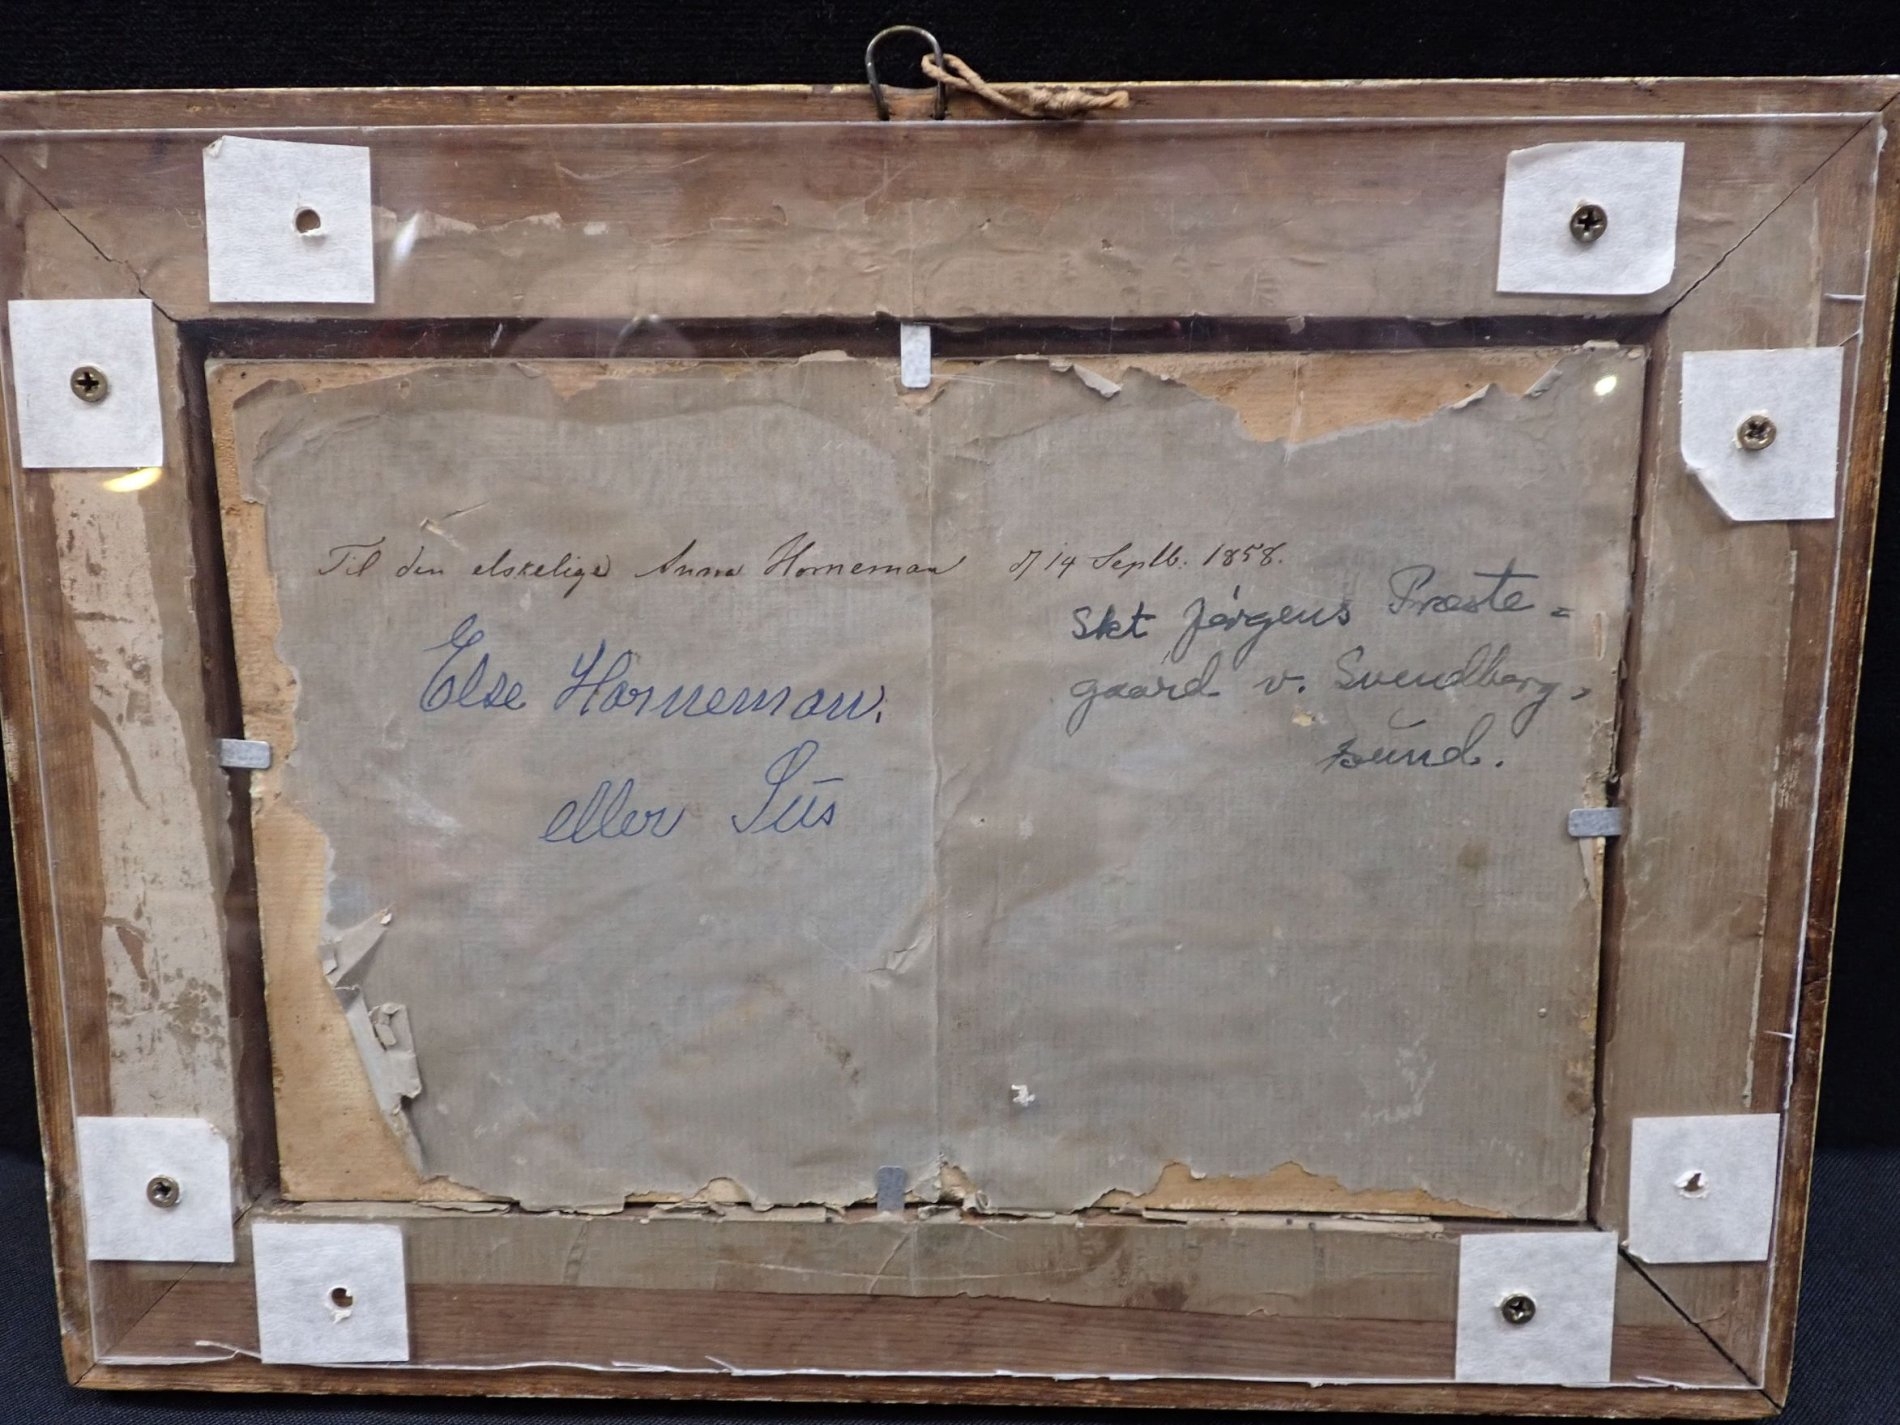 Til den elskelige Anna Horneman d/ 14 Septb. 1858.
Else Horneman.
eller Sūs
Skt Jørgens Præste=
gaard v. Svendborg,
sund.